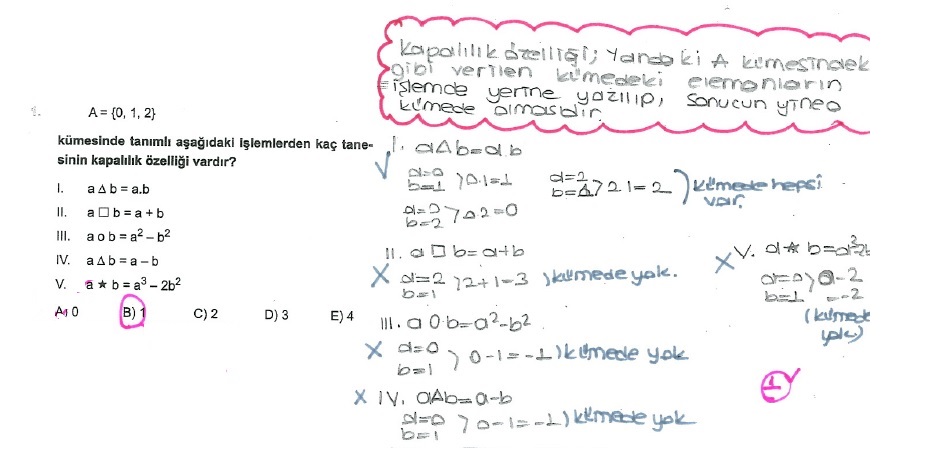 Kapalılık özelliği; Yandaki A kümesindek
gibi verilen kümedeki elemanların
işlemde yerine yazılıp, sonucun yine o
kümede olmasıdır.
1.
A = {0, 1, 2}
kümesinde tanımlı aşağıdaki işlemlerden kaç tane-
sinin kapalılık özelliği vardır?
I. a Δ b = a.b
II. a □ b = a + b
III. a o b = a² – b²
IV. a Δ b = a – b
V. a ★ b = a³ – 2b²
A) 0 B) 1 C) 2 D) 3 E) 4
√ I. aΔb=a.b
a=0
b=1 > 0.1=1
a=2
b=1 > 2.1=2
) kümede hepsi
var.
a=0
b=2 > 0.2=0
II. a □ b=a+b
X a=2
b=1 > 2+1=3 ) kümede yok.
III. a O b=a²-b²
X a=0
b=1 > 0-1=-1 ) kümede yok
X IV. aΔb=a-b
a=0
b=1 > 0-1=-1 ) kümede yok
X V. a ★ b=a³-2b
a=0
b=1 > 0-2
=-2
(kümede
yok)
1 √